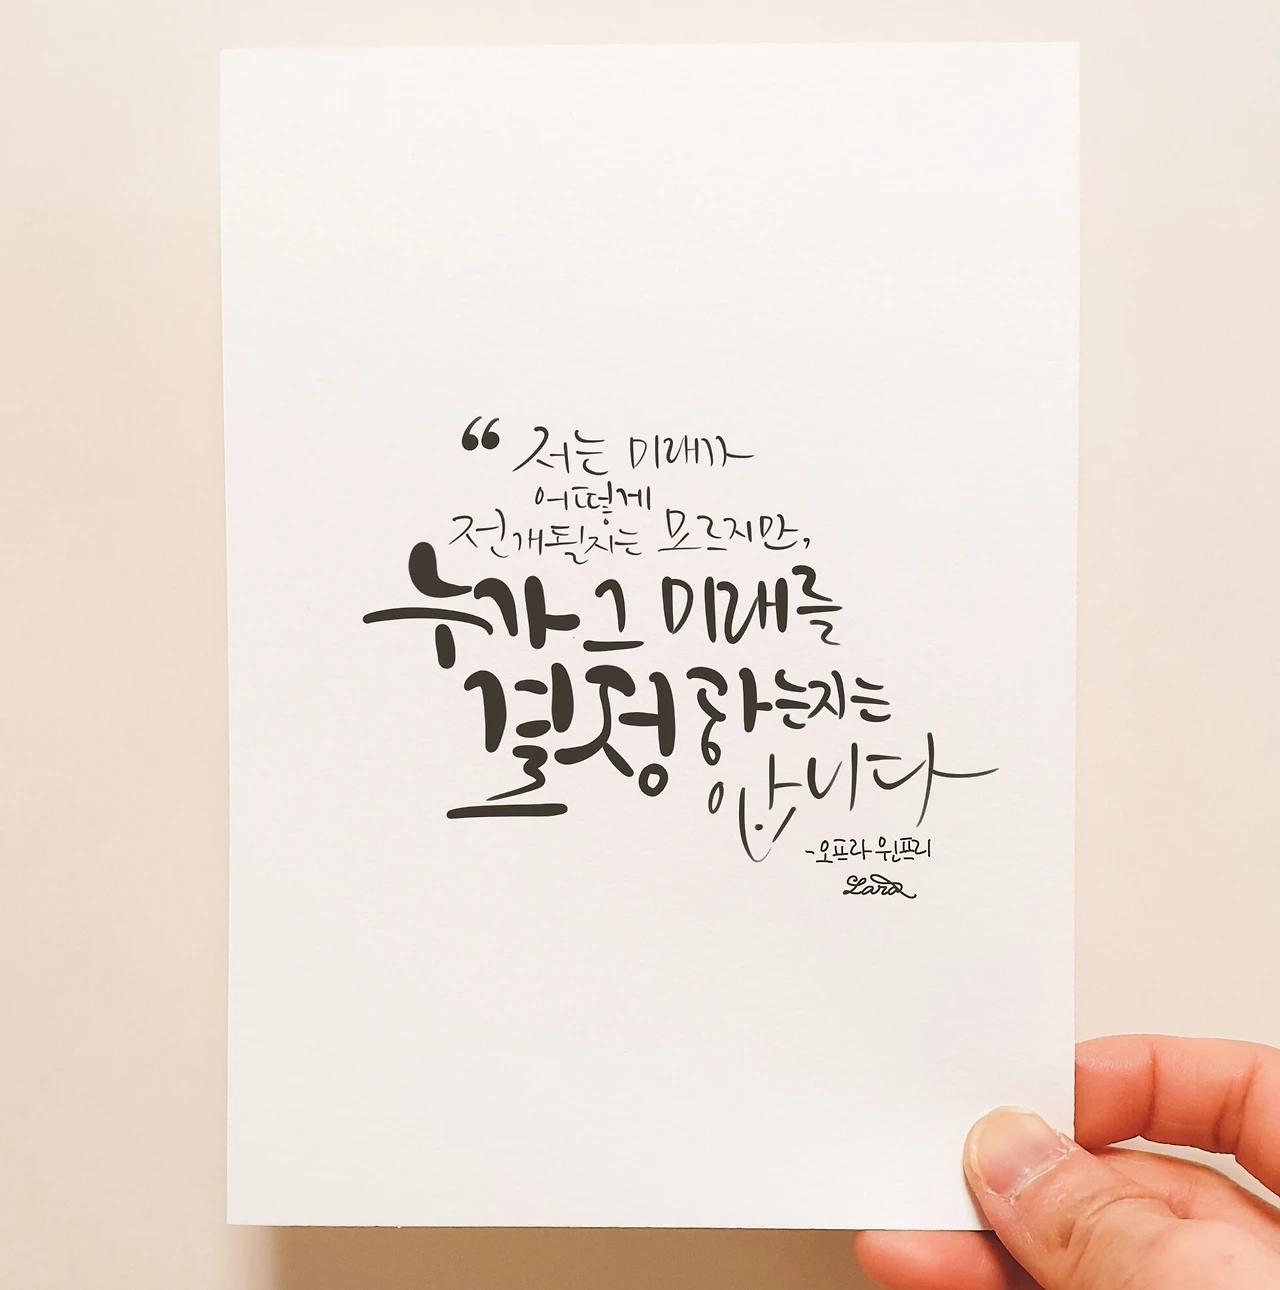 “ 저는 미래가
어떻게
전개될지는 모르지만,
누가 그 미래를
결정하는지는
압니다
-오프라 윈프리
Lara